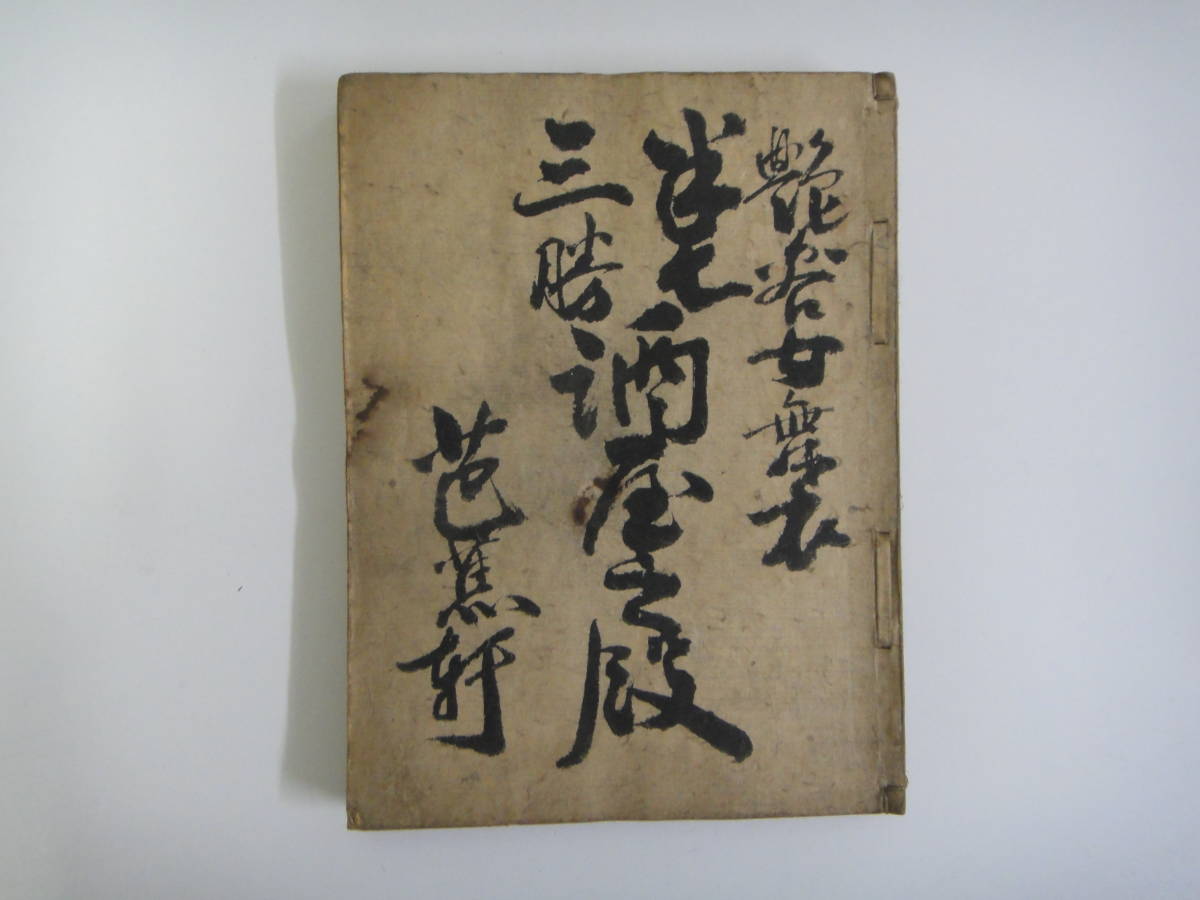 艶容女舞衣
半七
三勝
酒屋之段
芭蕉軒